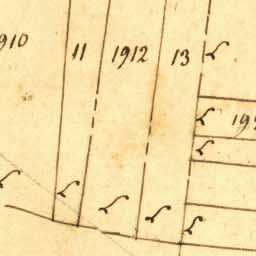 910 11 1912 13